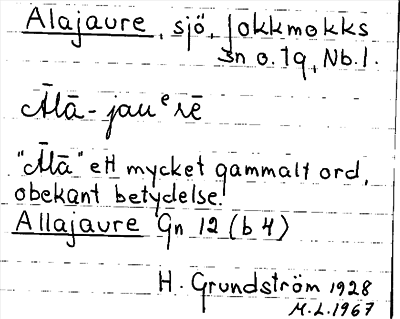 Alajaure, sjö, Jokkmokks
sn o. tg, Nb. l.
Ālā-jauᵉrē
"Ālā" ett mycket gammalt ord,
obekant betydelse.
Allajaure Gn 12 (b 4)
H. Grundström 1928
M.L. 1967